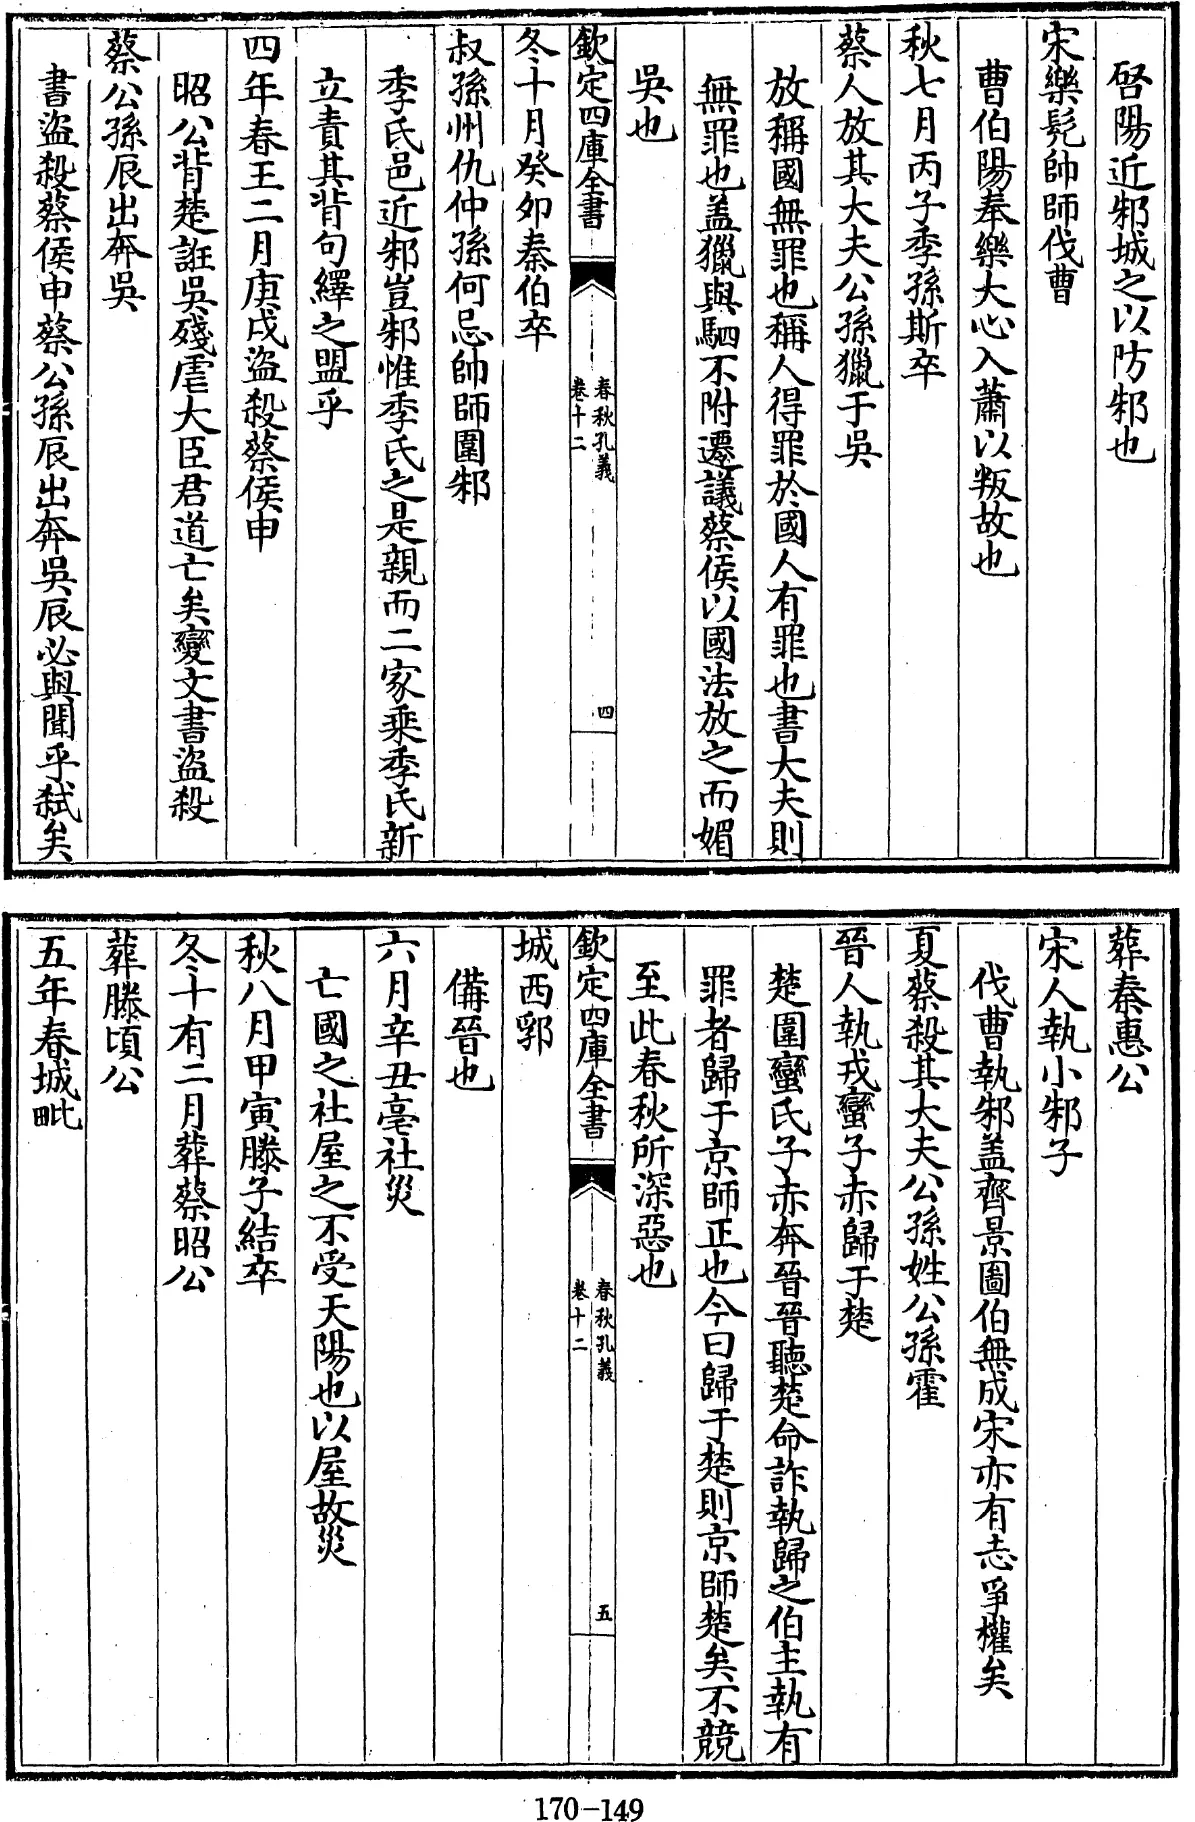 啓陽近邾城之以防邾也
宋樂髠帥師伐曹
曹伯陽奉樂大心入蕭以叛故也
秋七月丙子季孫斯卒
蔡人放其大夫公孫獵于吳
放稱國無罪也稱人得罪於國人有罪也書大夫則
無罪也盖獵與駟不附遷議蔡侯以國法放之而媚
吳也
欽定四庫全書
春秋孔義
卷十二
四
冬十月癸卯秦伯卒
叔孫州仇仲孫何忌帥師圍邾
季氏邑近邾豈邾惟季氏之是親而二家乗季氏新
立責其背句繹之盟乎
四年春王二月庚戌盜殺蔡侯申
昭公背楚誑吳殘虐大臣君道亡矣變文書盜殺
蔡公孫辰出奔吳
書盜殺蔡侯申蔡公孫辰出奔吳辰必與聞乎弑矣
葬秦惠公
宋人執小邾子
伐曹執邾盖齊景圖伯無成宋亦有志爭權矣
夏蔡殺其大夫公孫姓公孫霍
晉人執戎蠻子赤歸于楚
楚圍蠻氏子赤奔晉晉聽楚命詐執歸之伯主執有
罪者歸于京師正也今曰歸于楚則京師楚矣不競
至此春秋所深惡也
欽定四庫全書
春秋孔義
卷十二
五
城西郛
備晉也
六月辛丑亳社災
亡國之社屋之不受天陽也以屋故災
秋八月甲寅滕子結卒
冬十有二月葬蔡昭公
葬滕頃公
五年春城毗
170-149